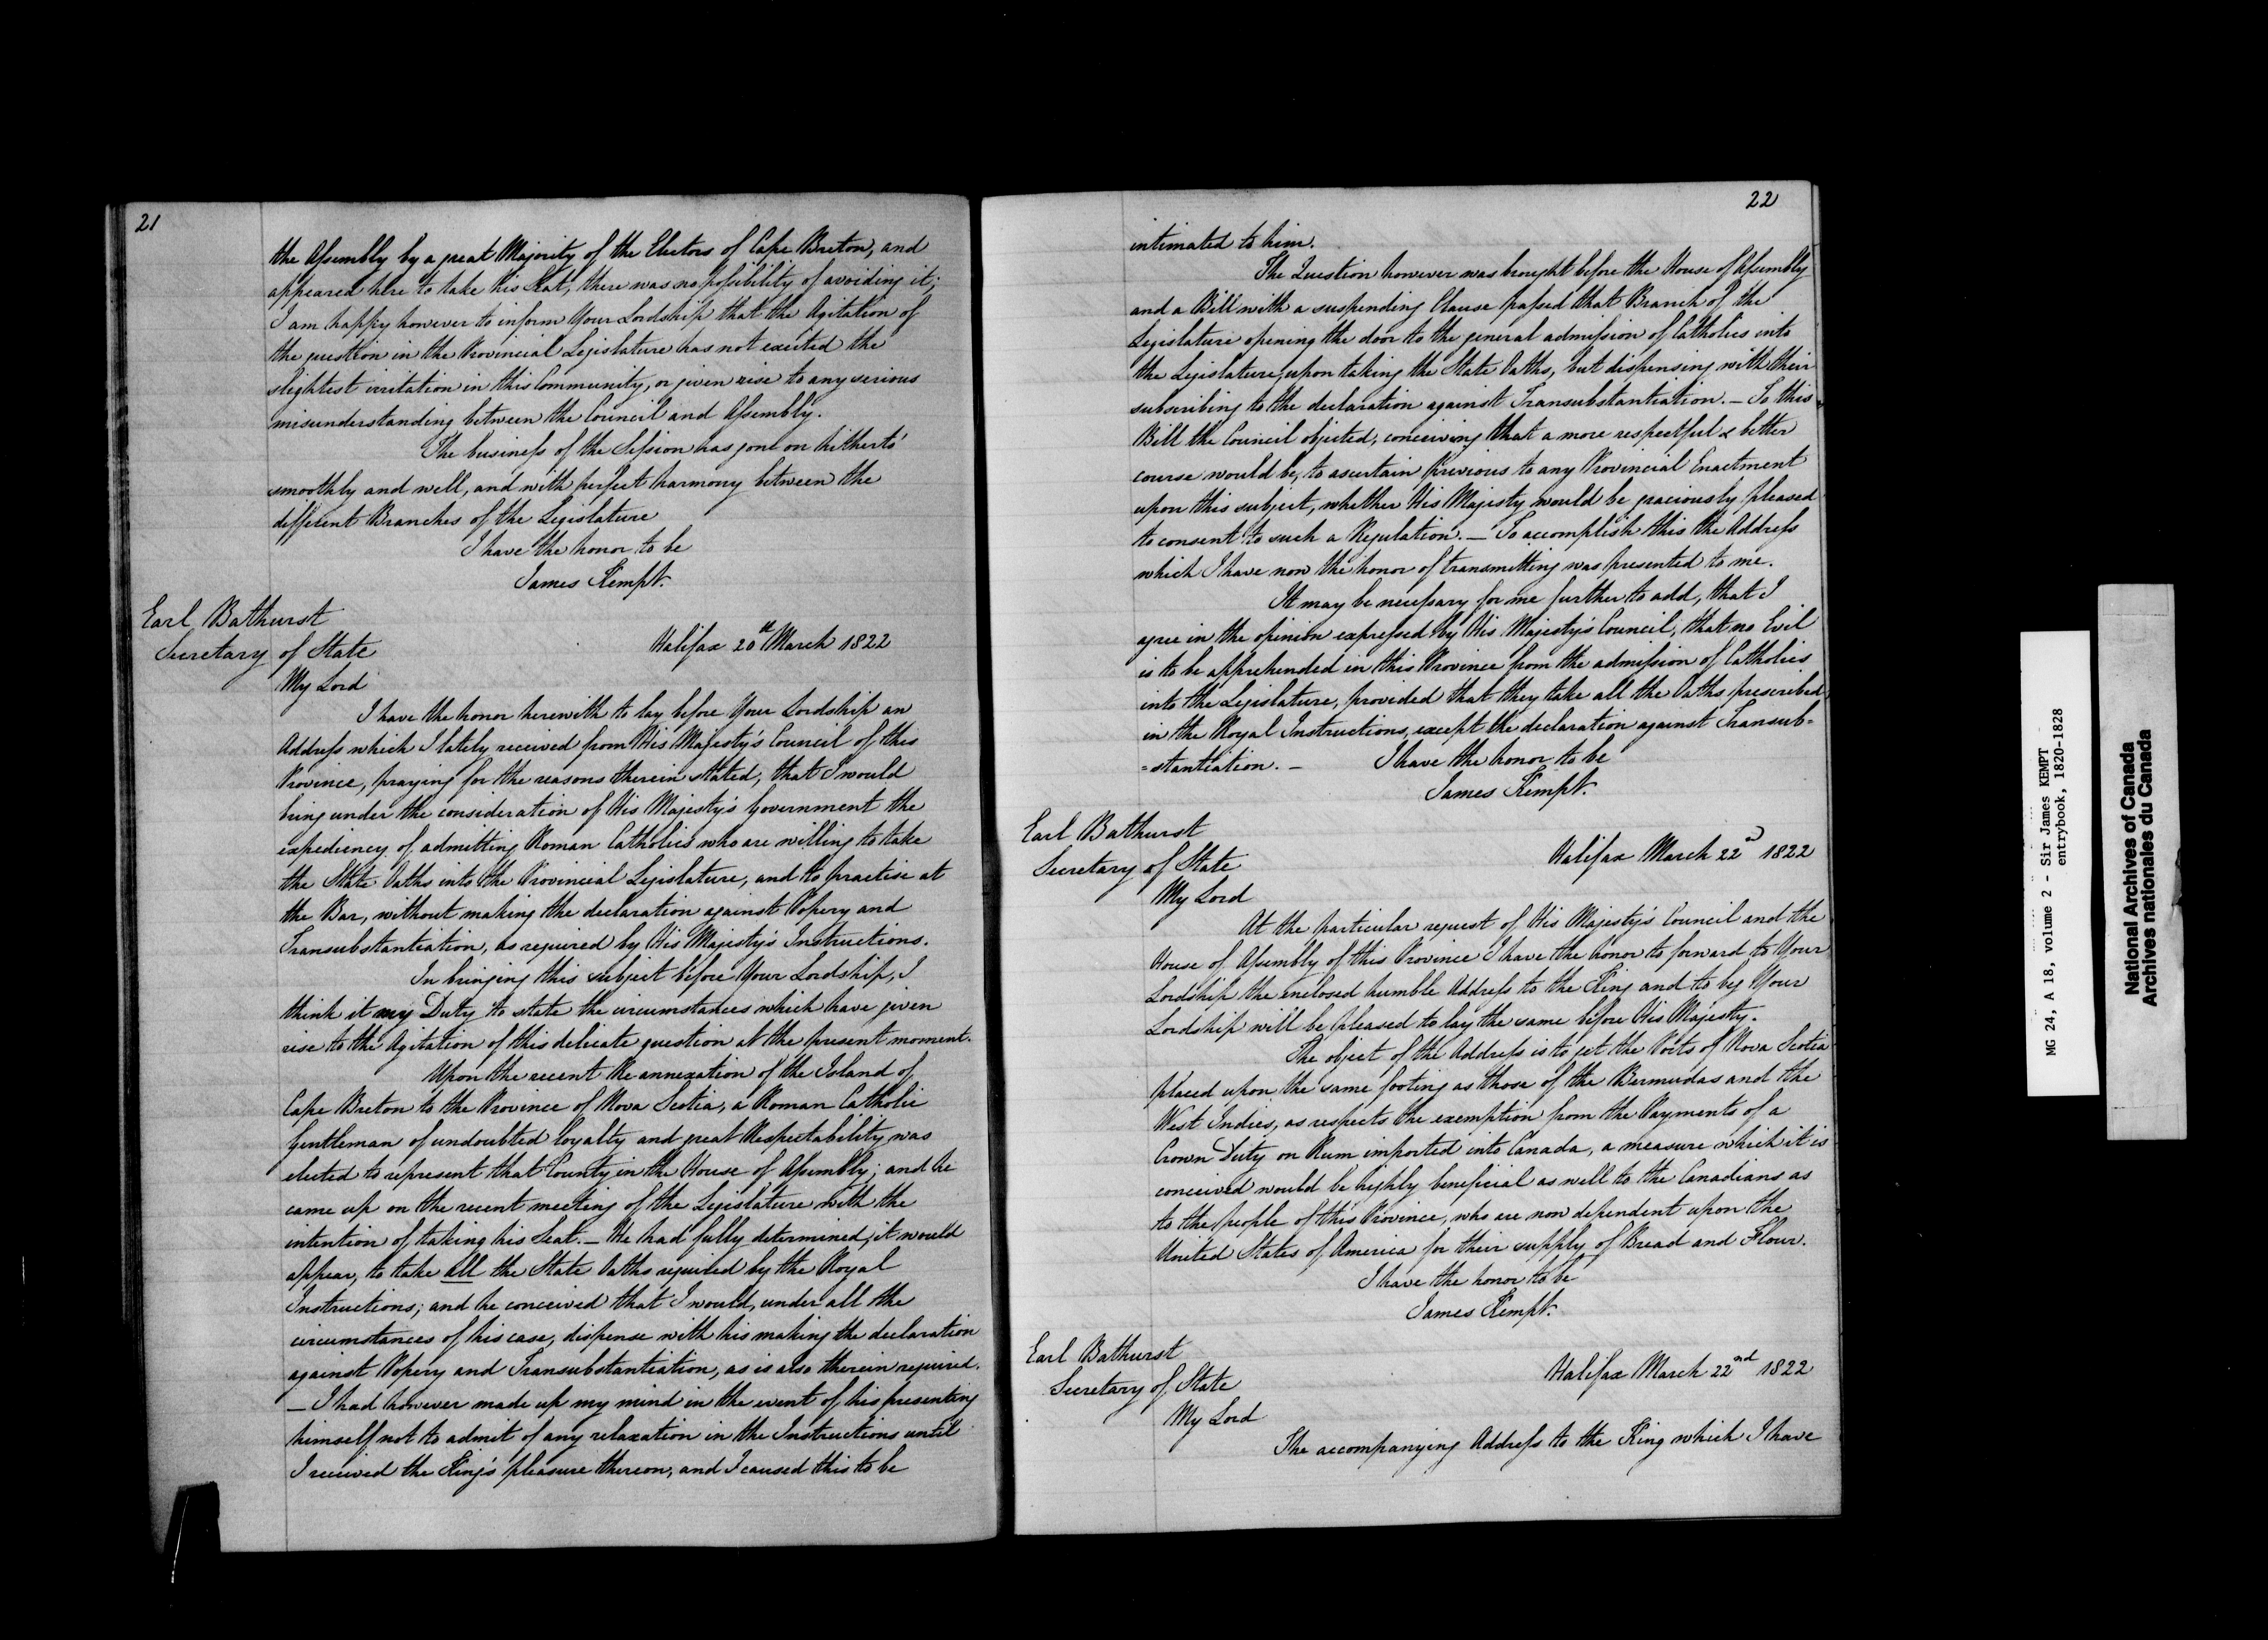 21
the Assembly by a great Majority of the Electors of Cape Breton, and
appeared here to take his Seat, there was no possibility of avoiding it;
I am happy however to inform Your Lordship that the Agitation of
the question in the Provincial Legislature has not excited the
slightest irritation in this Community, or given rise to any serious
misunderstanding between the Council and Assembly.
The business of the Session has gone on hitherto
smoothly and well, and with perfect harmony between the
different Branches of the Legislature
I have the honor to be
James Kempt.
Earl Bathurst
Secretary of State
Halifax 20th March 1822
My Lord
I have the honor herewith to lay before Your Lordship an
Address which I lately received from His Majesty's Council of this
Province, praying for the reasons therein stated, that I would
bring under the consideration of His Majesty's Government the
expediency of admitting Roman Catholics who are willing to take
the State Oaths into the Provincial Legislature, and to practise at
the Bar, without making the declaration against Popery and
Transubstantiation, as required by His Majesty's Instructions.
In bringing this subject before Your Lordship, I
think it my Duty to state the circumstances which have given
rise to the Agitation of this delicate question at the present moment.
Upon the recent Re annexation of the Island of
Cape Breton to the Province of Nova Scotia, a Roman Catholic
Gentleman of undoubted loyalty and great Respectability was
elected to represent that County in the House of Assembly; and he
came up on the recent meeting of the Legislature with the
intention of taking his Seat. — He had fully determined, it would
appear, to take all the State Oaths required by the Royal
Instructions; and he conceived that I would, under all the
circumstances of his case, dispense with his making the declaration
against Popery and Transubstantiation, as is also therein required.
— I had however made up my mind in the event of his presenting
himself not to admit of any relaxation in the Instructions until
I received the King's pleasure thereon, and I caused this to be
22
intimated to him.
The Question however was brought before the House of Assembly
and a Bill with a suspending Clause passed that Branch of the
Legislature opening the door to the general admission of Catholics into
the Legislature, upon taking the State Oaths, but dispensing with their
subscribing to the declaration against Transubstantiation. — To this
Bill the Council objected, conceiving that a more respectful & better
course would be, to ascertain Previous to any Provincial Enactment
upon this subject, whether His Majesty would be graciously pleased
to consent to such a Regulation. — To accomplish this the Address
which I have now the honor of transmitting was presented to me.
It may be necessary for me further to add, that I
agree in the opinion expressed by His Majesty's Council, that no Evil
is to be apprehended in this Province from the admission of Catholics
into the Legislature, provided that they take all the Oaths prescribed
in the Royal Instructions, except the declaration against Transub=
=stantiation. — I have the honor to be
James Kempt.
Earl Bathurst
Secretary of State
Halifax March 22d 1822
My Lord
At the particular request of His Majesty's Council and the
House of Assembly of this Province I have the honor to forward to Your
Lordship the enclosed humble Address to the King and to beg Your
Lordship will be pleased to lay the same before His Majesty.
The object of the Address is to get the Ports of Nova Scotia
placed upon the same footing as those of the Bermudas and the
West Indies, as respects the exemption from the Payments of a
Crown Duty on Rum imported into Canada, a measure which it is
conceived would be highly beneficial as well to the Canadians as
to the people of this Province, who are now dependent upon the
United States of America for their supply of Bread and Flour.
I have the honor to be
James Kempt.
Earl Bathurst
Secretary of State
Halifax March 22nd 1822
My Lord
The accompanying Address to the King which I have
MG 24, A 18, volume 2 - Sir James KEMPT
entrybook, 1820-1828
National Archives of Canada
Archives nationales du Canada